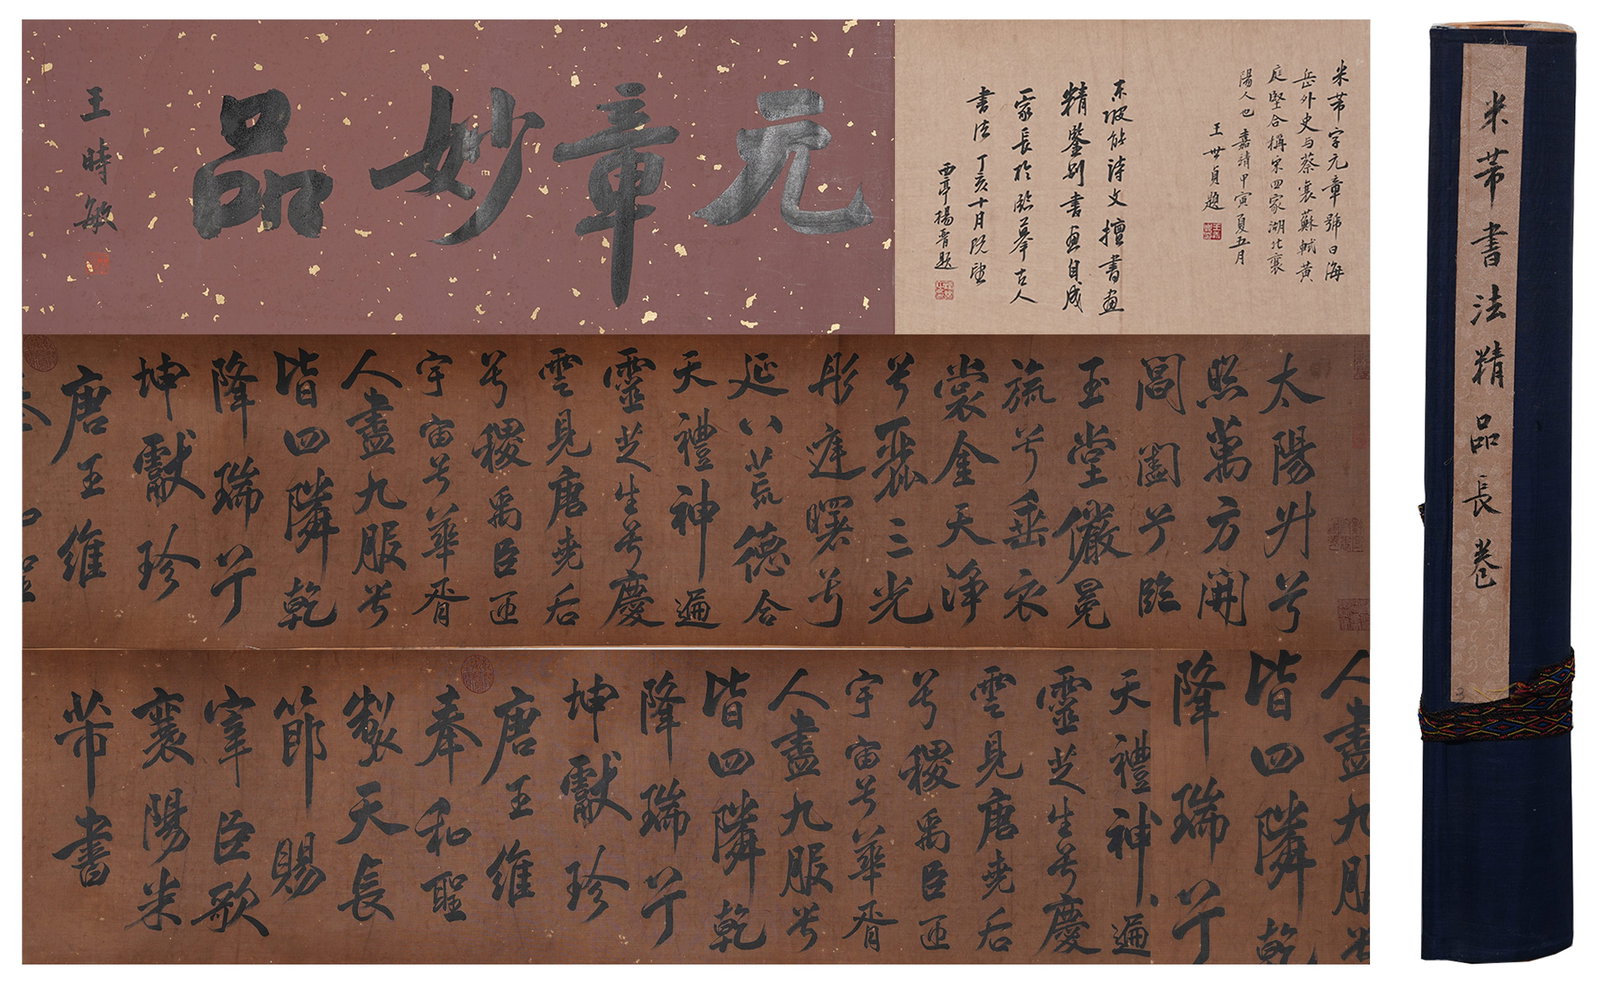 元章妙品
王時敏
米芾字元章號曰海
岳外史与蔡襄蘇軾黃
庭堅合稱宋四家湖北襄
陽人也嘉靖甲寅夏五月
王世貞題
東坡能诗文擅書畫
精鑒别書畫自成
一家長於臨摹古人
書法丁亥十月既望
西亭楊晋题
太陽升兮
照萬方開
閶闔兮臨
玉堂儼冕
旒兮垂衣
裳金天淨
兮麗三光
彤庭曙兮
延八荒德合
天禮神遍
靈芝生兮慶
雲見唐堯后
兮稷禹臣匝
宇宙兮華胥
人盡九服兮
皆四隣乾
降瑞兮
坤獻珍
唐王維
人盡九服兮
皆四隣乾
降瑞兮
天禮神遍
靈芝生兮慶
雲見唐堯后
兮稷禹臣匝
宇宙兮華胥
人盡九服兮
皆四隣乾
降瑞兮
坤獻珍
唐王維
奉和聖
製天長
節賜
宰臣歌
襄陽米
芾書
米芾書法精品長卷